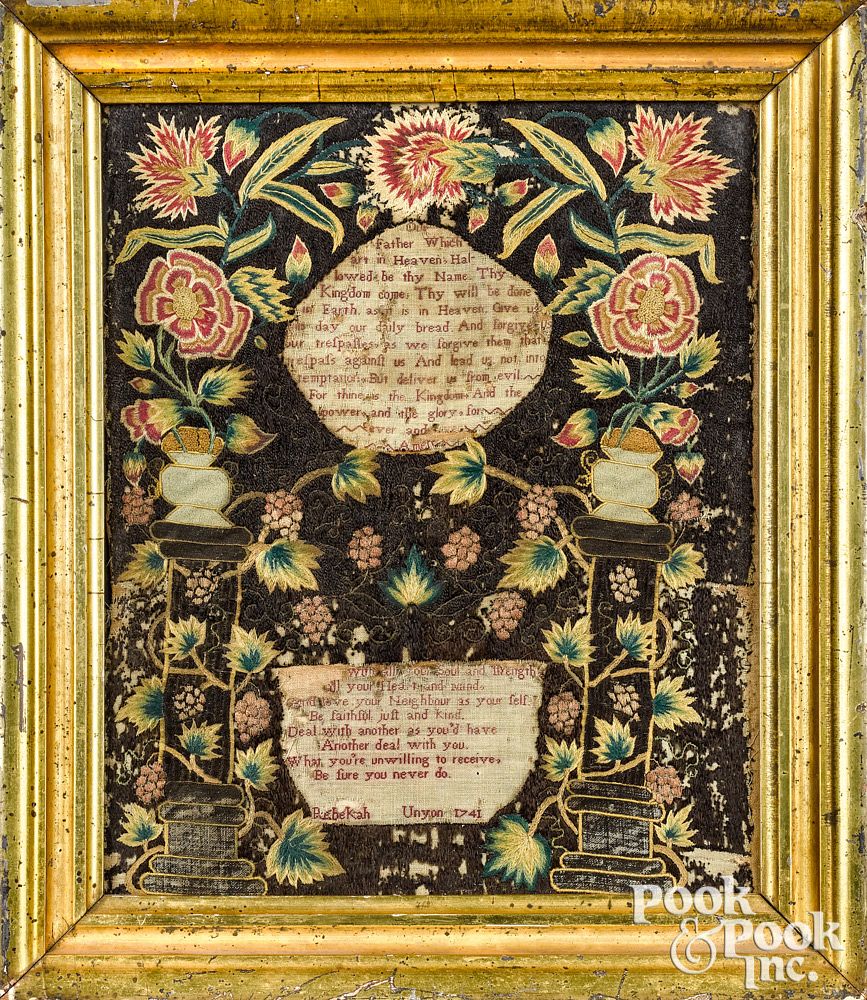 Our
Father Which
art in Heaven, Hal-
lowed be thy Name. Thy
Kingdom come, Thy will be done
in Earth, as it is in Heaven, Give us
this day our daily bread And forgive us
our treſpaſſes, as we forgive them that
treſpaſs againſt us And lead us not into
temptation, But deliver us from evil
For thine is the Kingdom, And the
power, and the glory, for
ever and
Amen
With all your Soul and ſtrength
all your Heart and mind,
and love your Neighbour as your ſelf,
Be faithful just and kind.
Deal with another as you'd have
Another deal with you.
What you're unwilling to receive,
Be ſure you never do.
RebeKah Unyon 1741
POOK
& POOK
INC.